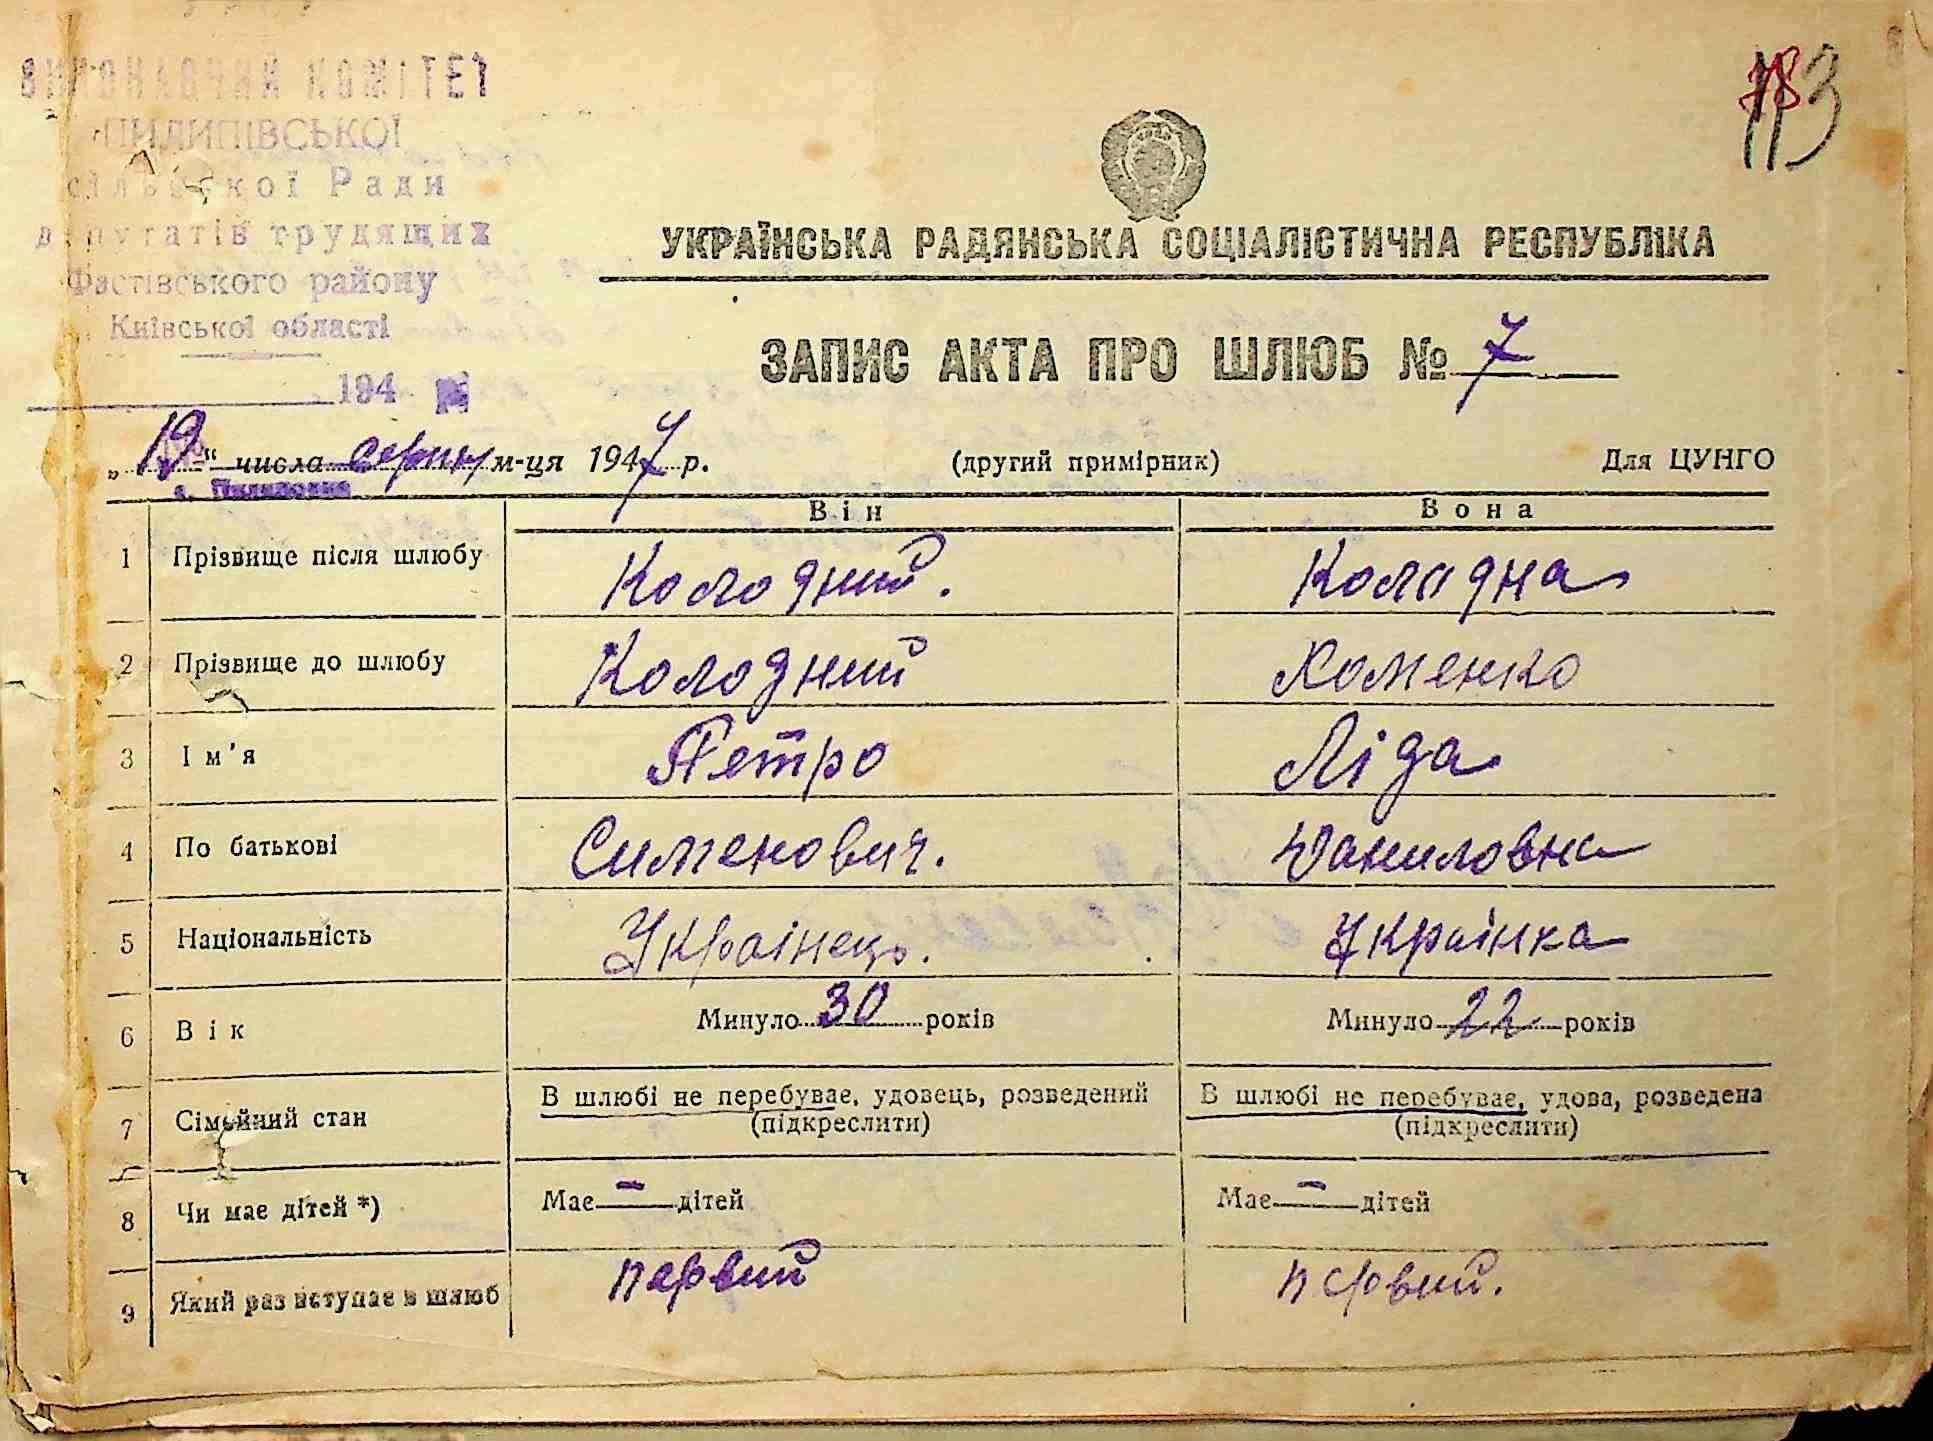 ВИКОНАВЧИЙ КОМІТЕТ
ПИЛИПІВСЬКОЇ
сільської Ради
депутатів трудящих
Фастівського району
Київської області
194
78
113
УКРАЇНСЬКА РАДЯНСЬКА СОЦІАЛІСТИЧНА РЕСПУБЛІКА
ЗАПИС АКТА ПРО ШЛЮБ № 7
„19“ числа серпн м-ця 1947 р. (другий примірник) Для ЦУНГО
с. Пилиповка
Він Вона
1 Прізвище після шлюбу Колодний. Колодна
2 Прізвище до шлюбу Колодний Хоменко
3 Ім'я Петро Ліда
4 По батькові Сименович. Даниловна
5 Національність Українець. Українка
6 Вік Минуло 30 років Минуло 22 років
7 Сімейний стан В шлюбі не перебуває, удовець, розведений В шлюбі не перебуває, удова, розведена
(підкреслити) (підкреслити)
8 Чи має дітей *) Має – дітей Має – дітей
9 Який раз вступає в шлюб первий первий.